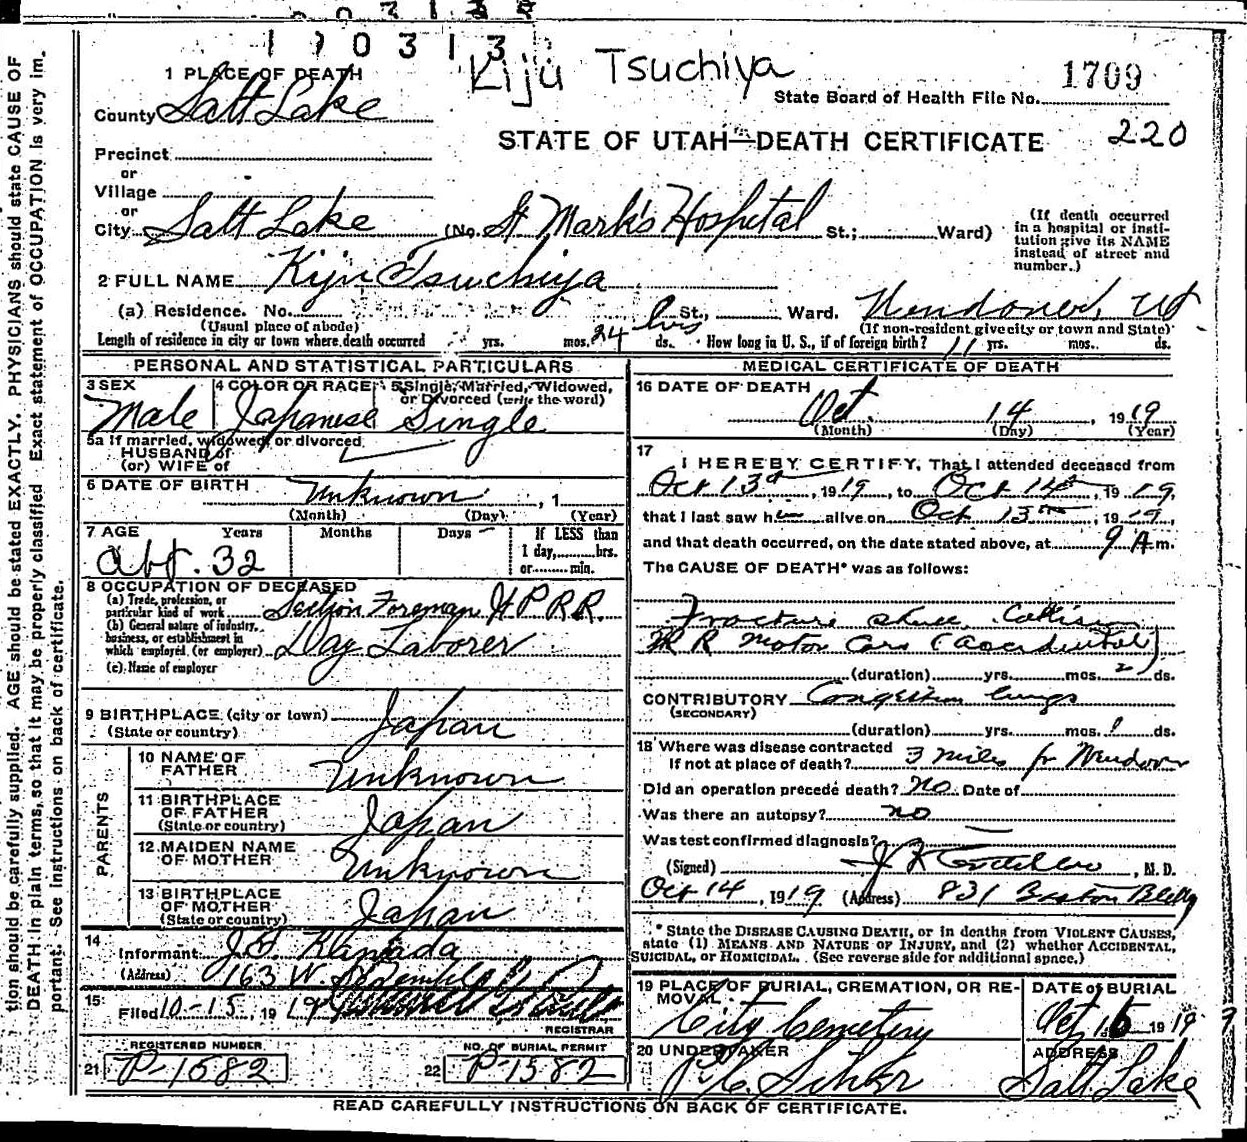 190313
Kiju Tsuchiya
1 PLACE OF DEATH
1709
State Board of Health File No.
County Salt Lake
STATE OF UTAH—DEATH CERTIFICATE 220
Precinct
or
Village
or
City Salt Lake (No. St Mark's Hospital St.; Ward)
(If death occurred
in a hospital or insti-
tution give its NAME
instead of street and
number.)
2 FULL NAME Kiju Tsuchiya
(a) Residence. No. St., Ward. Wendover, Ut
(Usual place of abode)
(If non-resident give city or town and State)
Length of residence in city or town where death occurred yrs. mos. 24 hrs ds. How long in U. S., if of foreign birth? 11 yrs. mos. ds.
PERSONAL AND STATISTICAL PARTICULARS
3 SEX
Male
4 COLOR OR RACE
Japanese
5 Single, Married, Widowed,
or Divorced (write the word)
Single
5a If married, widowed, or divorced
HUSBAND of
(or) WIFE of
6 DATE OF BIRTH Unknown , 1
(Month) (Day) (Year)
7 AGE Years Months Days If LESS than
1 day, hrs.
or min.
abt. 32
8 OCCUPATION OF DECEASED
(a) Trade, profession, or
particular kind of work Section Foreman W.P.R.R.
(b) General nature of industry,
business, or establishment in
which employed (or employer) Day Laborer
(c) Name of employer
9 BIRTHPLACE (city or town)
(State or country) Japan
PARENTS
10 NAME OF
FATHER Unknown
11 BIRTHPLACE
OF FATHER
(State or country) Japan
12 MAIDEN NAME
OF MOTHER Unknown
13 BIRTHPLACE
OF MOTHER
(State or country) Japan
14
Informant
(Address) 163 W.
15
Filed 10-15, 19 19
REGISTRAR
REGISTERED NUMBER
21 P-1582
NO. OF BURIAL PERMIT
22 P-1582
MEDICAL CERTIFICATE OF DEATH
16 DATE OF DEATH
Oct 14 1919
(Month) (Day) (Year)
17
I HEREBY CERTIFY, That I attended deceased from
Oct 13th, 1919, to Oct 14th, 1919,
that I last saw him alive on Oct 13th, 1919,
and that death occurred, on the date stated above, at 9 A m.
The CAUSE OF DEATH* was as follows:
Fracture skull. Collision
R R Motor Cars (Accidental)
(duration) yrs. mos. 2 ds.
CONTRIBUTORY Congestion lungs
(SECONDARY)
(duration) yrs. mos. 1 ds.
18 Where was disease contracted
If not at place of death? 3 miles fr Wendover
Did an operation precede death? No Date of
Was there an autopsy? no
Was test confirmed diagnosis? —
(Signed) , M. D.
Oct 14, 1919 (Address) 831 Boston Bldg
* State the DISEASE CAUSING DEATH, or in deaths from VIOLENT CAUSES,
state (1) MEANS AND NATURE OF INJURY, and (2) whether ACCIDENTAL,
SUICIDAL, or HOMICIDAL. (See reverse side for additional space.)
19 PLACE OF BURIAL, CREMATION, OR RE-
MOVAL
City Cemetery
DATE of BURIAL
Oct 16 1919
20 UNDERTAKER
ADDRESS
Salt Lake
READ CAREFULLY INSTRUCTIONS ON BACK OF CERTIFICATE.
tion should be carefully supplied. AGE should be stated EXACTLY. PHYSICIANS should state CAUSE OF
DEATH in plain terms, so that it may be properly classified. Exact statement of OCCUPATION is very im.
portant. See instructions on back of certificate.